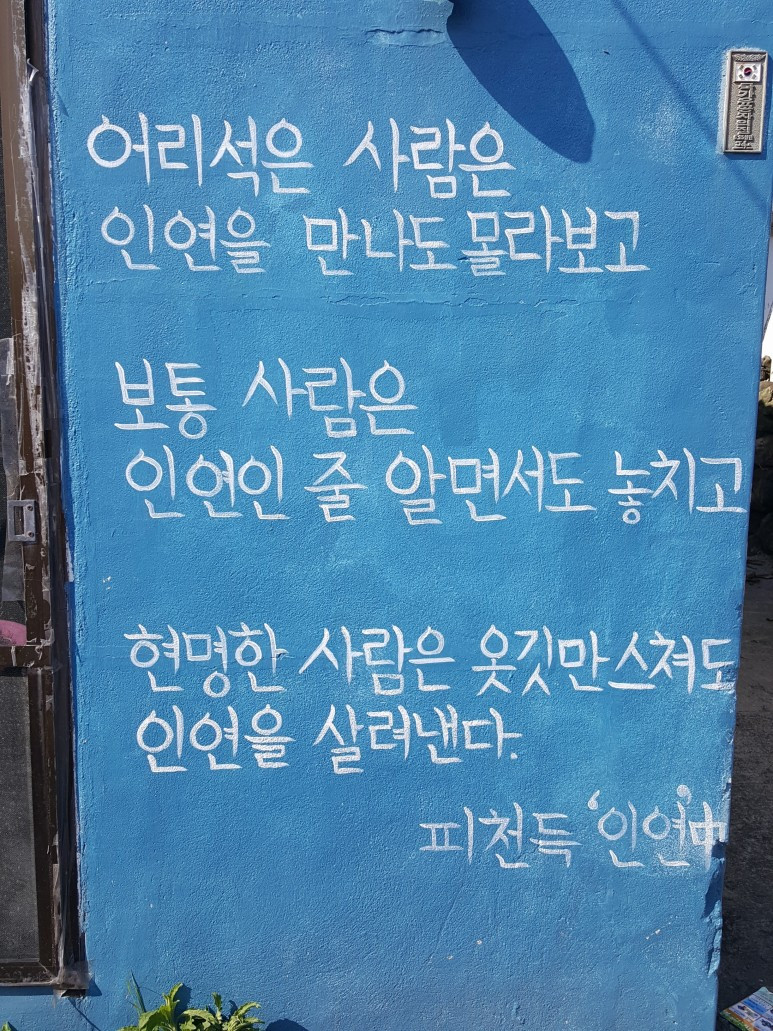 어리석은 사람은
인연을 만나도 몰라보고
보통 사람은
인연인 줄 알면서도 놓치고
현명한 사람은 옷깃만스쳐도
인연을 살려낸다.
피천득 '인연'中